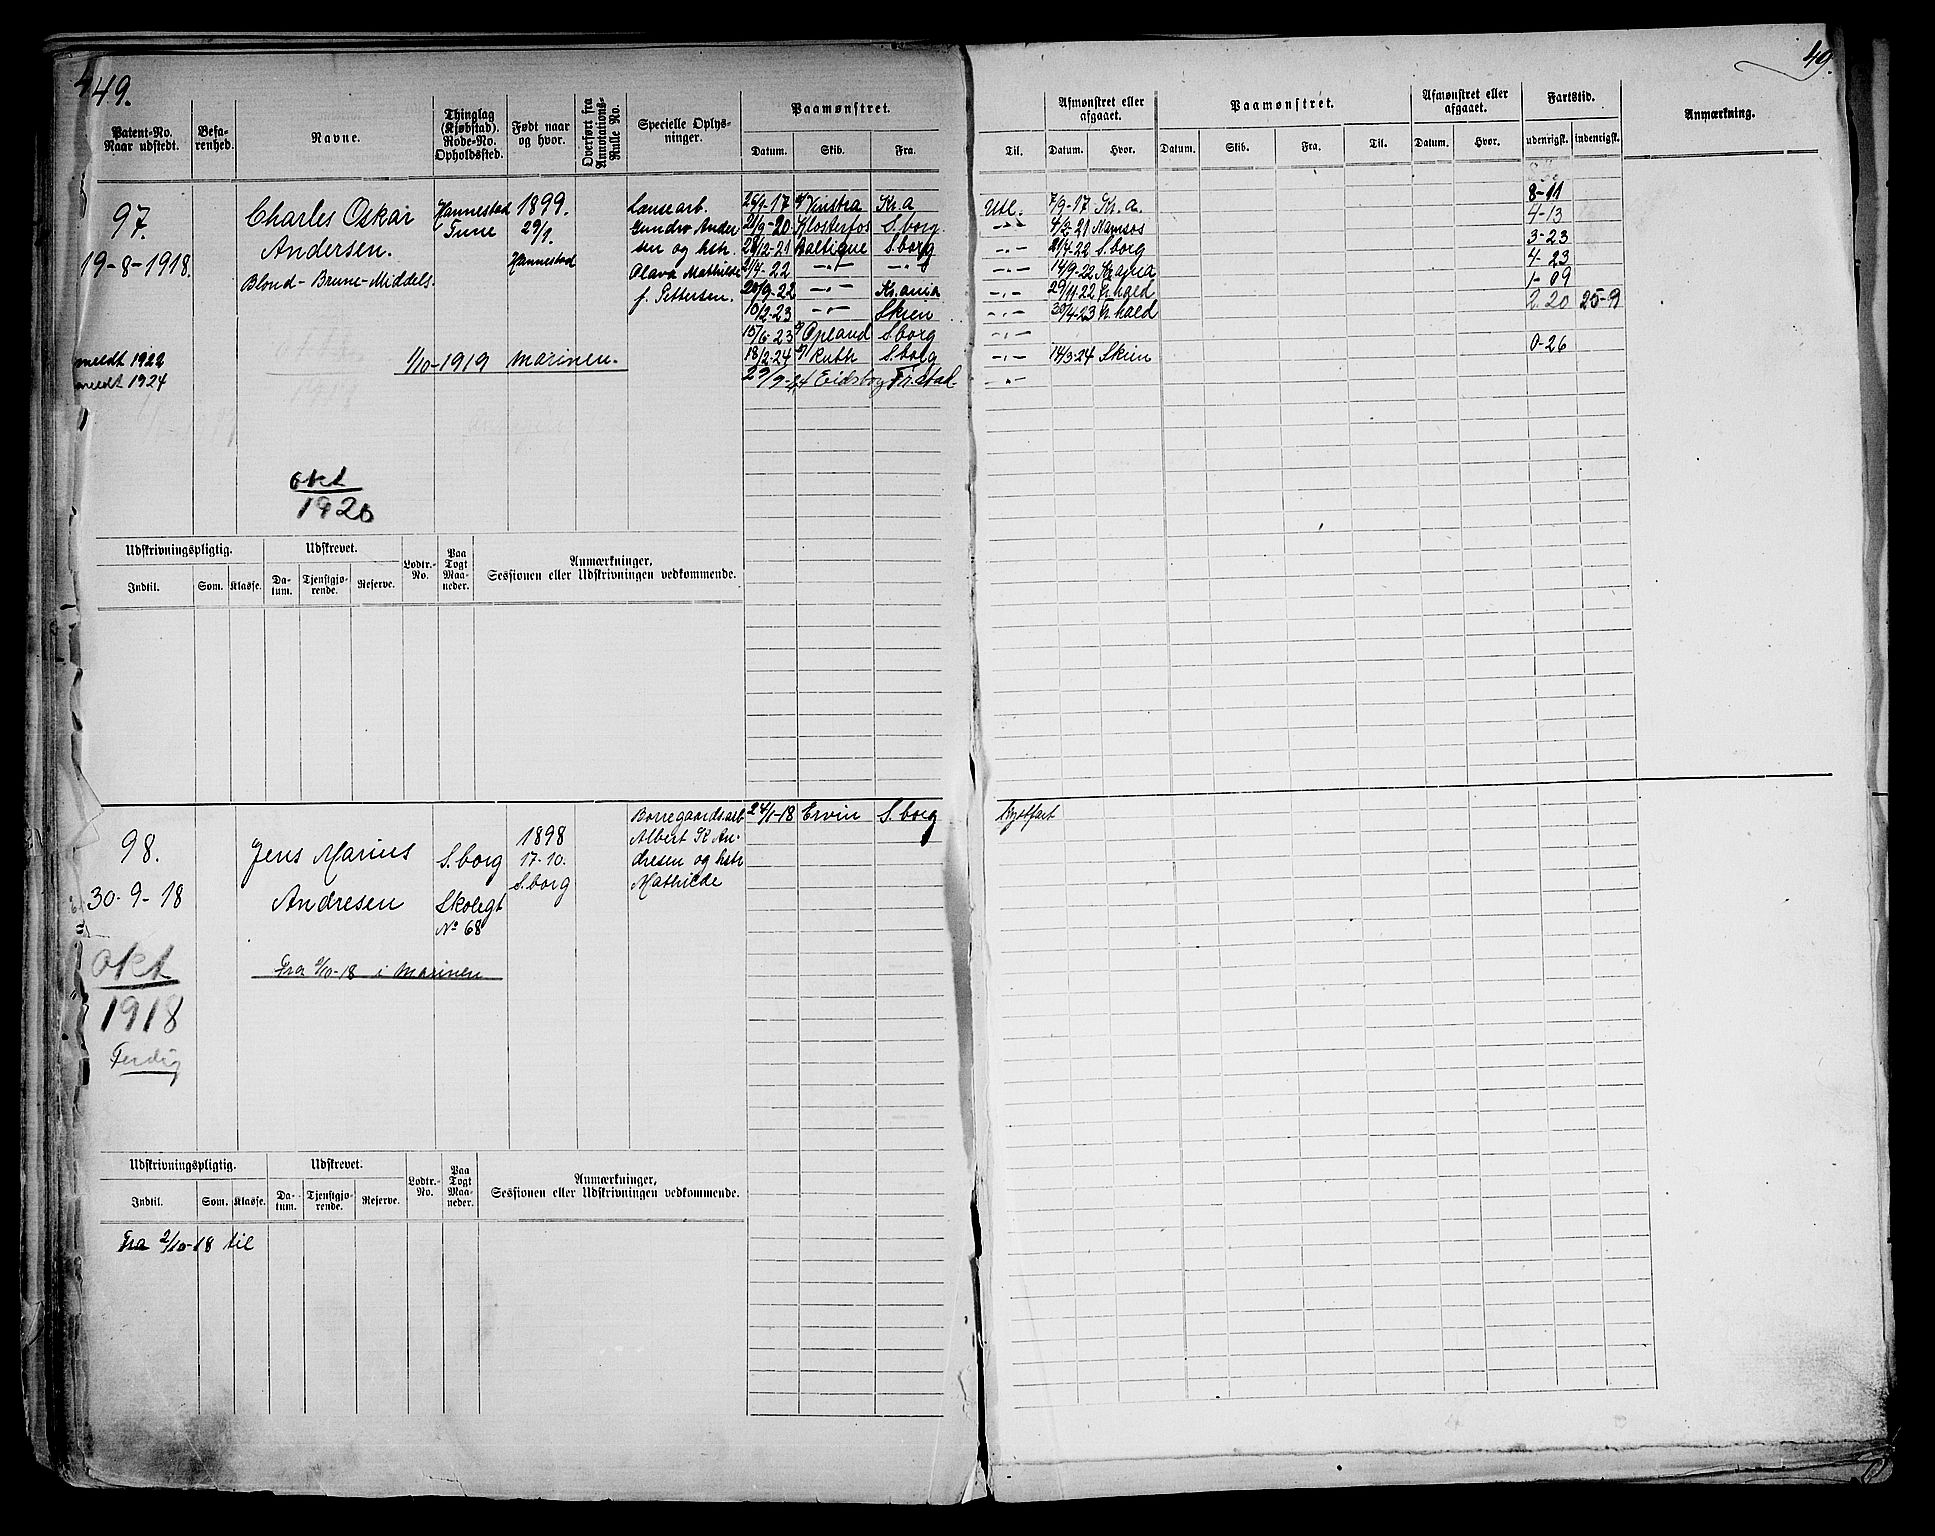 49.
49.
Patent-No. Naar udstedt.
Befarenhed.
Navne.
Thinglag (Kjøbstad). Rode-No. Opholdssted.
Født naar og hvor.
Overført fra Annotations-Rulle No.
Specielle Oplysninger.
Paamønstret.
Datum. Skib. Fra. Til.
Afmønstret eller afgaaet.
Datum. Hvor.
Paamønstret.
Datum. Skib. Fra. Til.
Afmønstret eller afgaaet.
Datum. Hvor.
Fartstid.
udenrigsk. indenrigsk.
Anmærkning.
97.
19-8-1918.
Charles Oskar
Andersen.
Blond-Brune-Middels.
Hannestad
Tune
1899.
29/1.
Hannestad
Lansearb.
Gunder Ander
sen og hstr.
Olava Mathilde
f. Pettersen.
Vinstra Kr.a Utl. 7/9-17 Kr.a. 8-11
21/9-20 Klosterfos S.borg. -"- 4/2-21 Namsos 4-13
Baltique S.borg -"- 21/4-22 S.borg 3-23
21/4-22 -"- -"- -"- 14/9-22 Kr.ania 4-23
20/9-22 -"- Kr.ania -"- 29/11-22 Fr.hald 1-09
10/2-23 -"- Skien -"- 30/4-23 Fr.hald 2-20 25-9
15/6-23 Opland S.borg -"-
18/2-24 Ruth S.borg -"- 14/3-24 Skien 0-26
29/9-24 Eidsborg Fr.stad- -"-
meldt 1922
meldt 1924
1/10-1919 marinen.
okt
1920
Udskrivningspligtig. Udskrevet. Lodtr.-No. Paa Togt Maaneder. Anmærkninger, Sessionen eller Udskrivningen vedkommende.
Indtil. Som. Klasse. Datum. Tjenstgjørende. Reserve.
98.
30-9-18
Jens Marius
Andresen
S.borg
Skolegt
No 68
1898
17-10.
S.borg
Borregaardsarb
Albert K An-
dresen og hstr
Mathilde
24/1-18 Ervin S.borg Kystfart
Fra 2/10-18 i marinen
okt
1918
Ferdig
Udskrivningspligtig. Udskrevet. Lodtr.-No. Paa Togt Maaneder. Anmærkninger, Sessionen eller Udskrivningen vedkommende.
Indtil. Som. Klasse. Datum. Tjenstgjørende. Reserve.
Fra 2/10-18 til